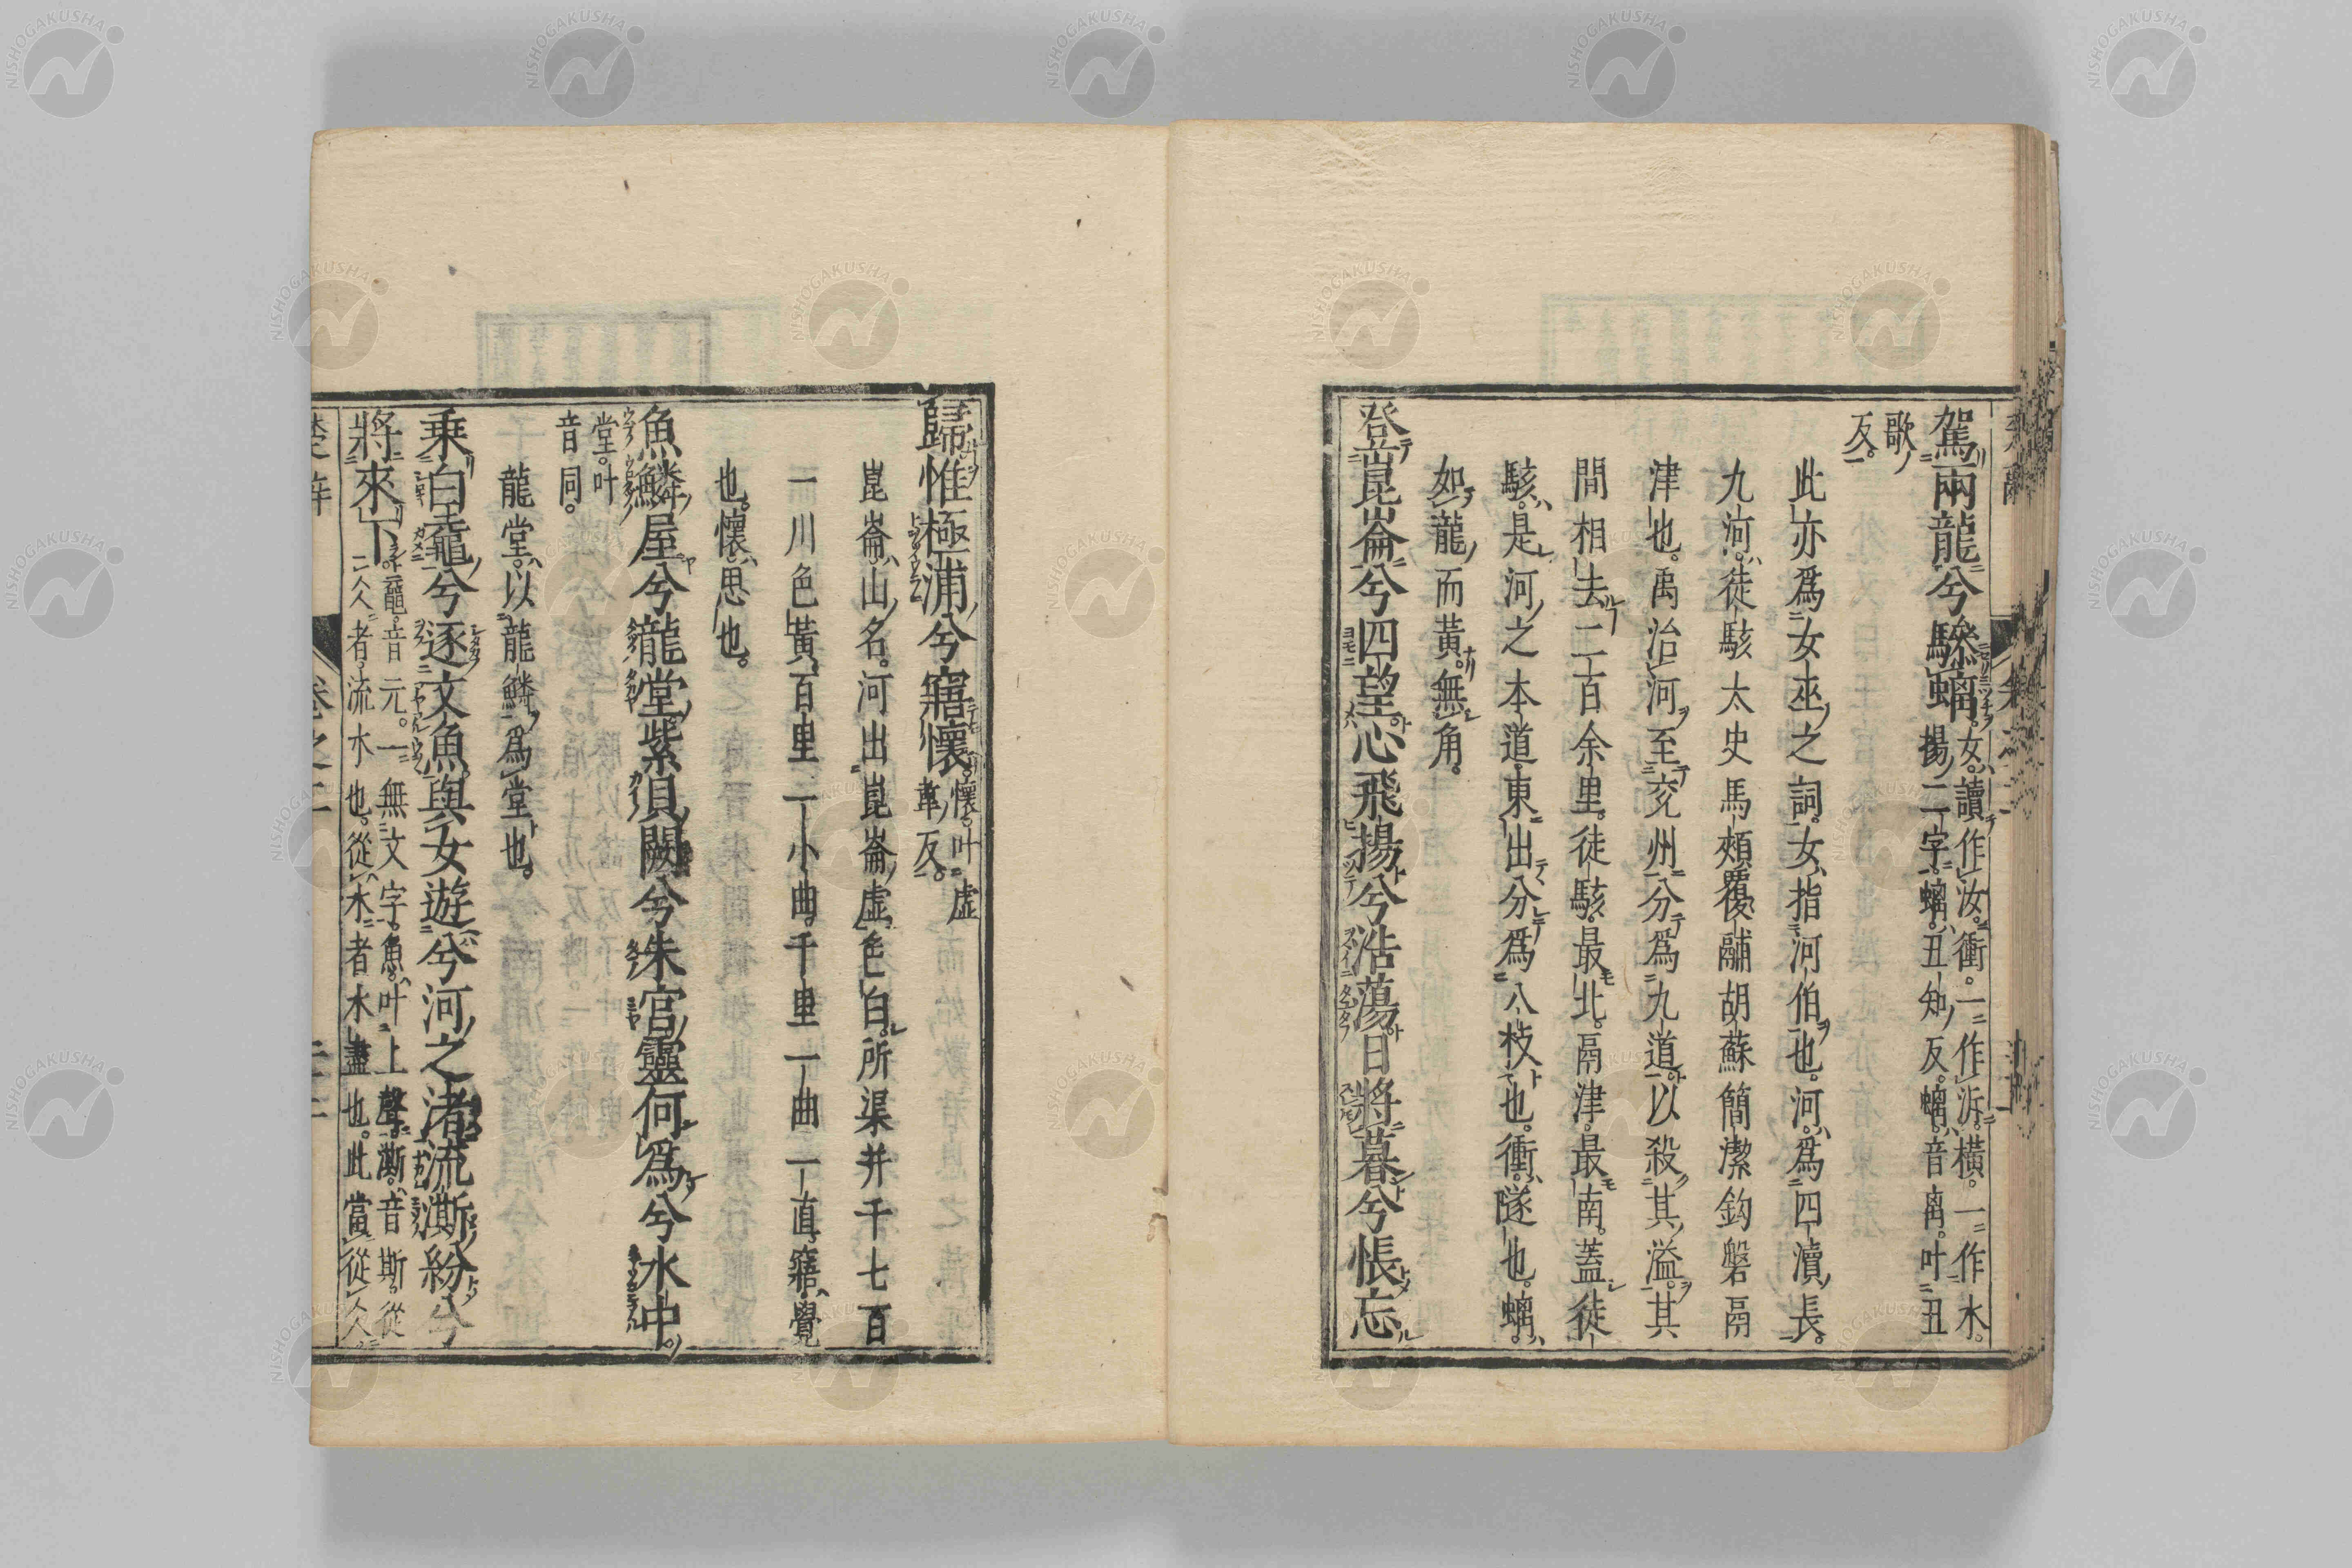 駕兩龍兮驂螭。女。讀作汝。衝。一作泝。橫。一作水。
揚二字。螭。丑知反。螭。音离。叶丑
歌
反。
此亦爲女巫之詞。女指河伯也。河。爲四瀆長。
九河。徒駭太史馬頰覆鬴胡蘇簡潔鈎磐鬲
津也。禹治河至兗州分爲九道。以殺其溢。其
間相去二百余里。徒駭最北。鬲津。最南。蓋徒
駭。是河之本道。東出分爲八枝也。衝。隧也。螭。
如龍而黃。無角。
登崑崙兮四望。心飛揚兮浩蕩。日將暮兮悵忘
歸。惟極浦兮寤懷。懷。叶虛
韋反。
崑崙。山名。河出崑崙虛。色白。所渠并千七百
一川色黃。百里一小曲。千里一曲一直。寤。覺
也。懷。思也。
魚鱗屋兮龍堂。紫貝闕兮朱宮。靈何爲兮水中。
堂。叶
音同。
龍堂。以龍鱗爲堂也。
乘白黿兮逐文魚。與女遊兮河之渚。流澌紛兮
將來下。黿。音元。一無文字。魚。叶上聲。澌。音斯。從
二人者。流水也。從水者。水盡也。此當從人。
楚辭
卷之二